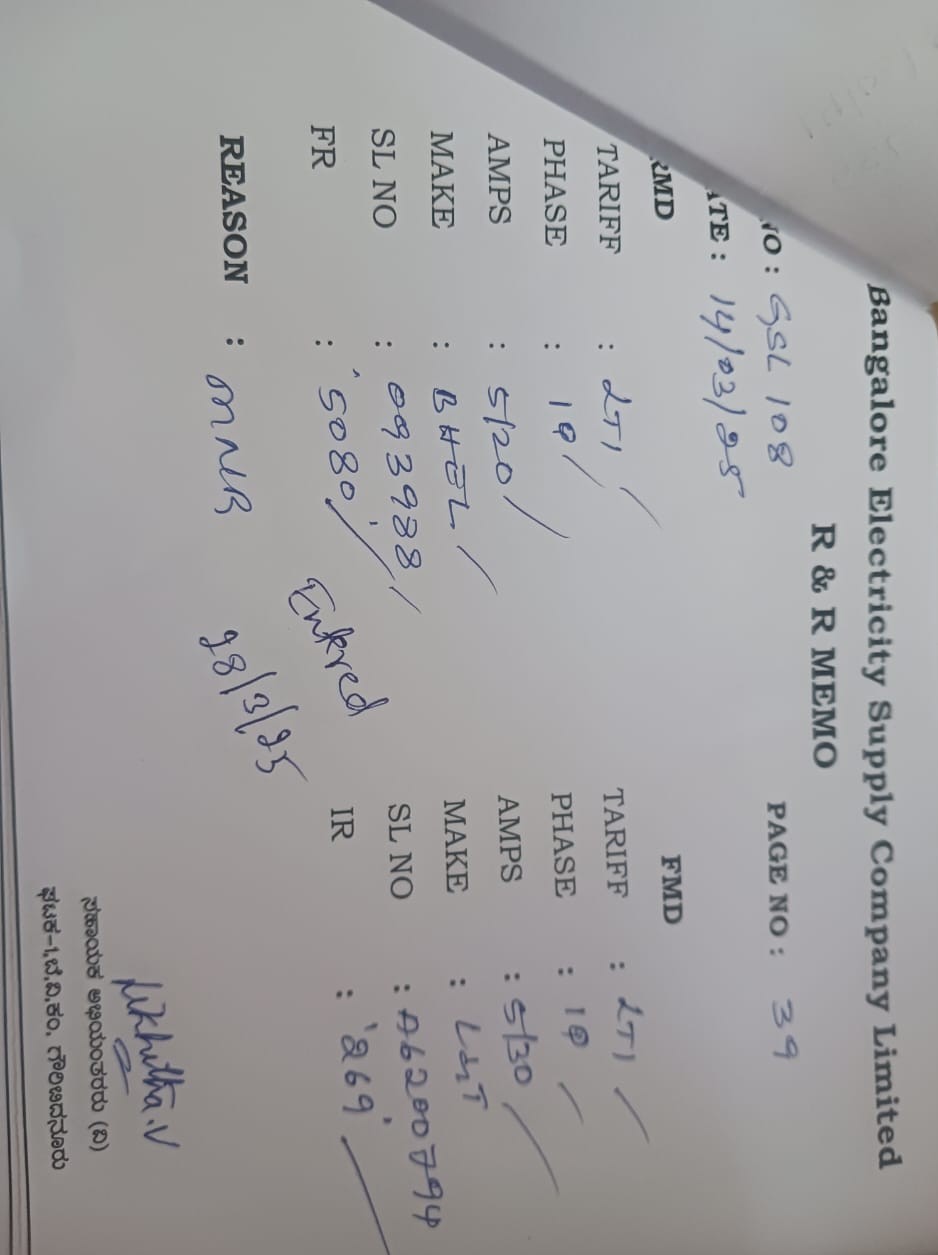 Bangalore Electricity Supply Company Limited
R & R MEMO
NO : GSL 108 PAGE NO : 39
ATE : 14/03/25
RMD FMD
TARIFF : LT1 TARIFF : LT1
PHASE : 1Φ PHASE : 1Φ
AMPS : 5/20 AMPS : 5/30
MAKE : BHEL MAKE : L&T
SL NO : 093988 SL NO : A6200794
FR : 5080 IR : 269
Entered
REASON : MNR 28/3/25
Nikhitha.V
ಸಹಾಯಕ ಅಭಿಯಂತರರು (ವಿ)
ಘಟಕ-1, ಬೆ.ವಿ.ಕಂ. ಗೌರಿಬಿದನೂರು